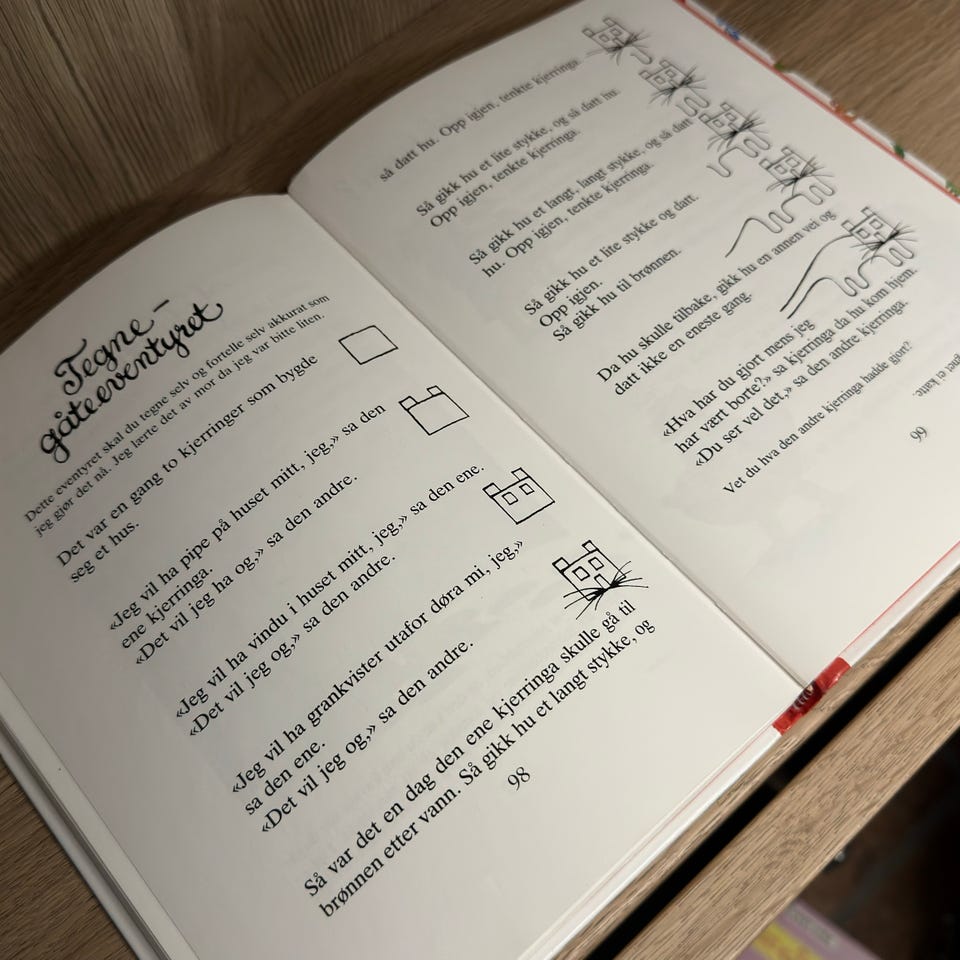 Tegne-
gåteeventyret
Dette eventyret skal du tegne selv og fortelle selv akkurat som
jeg gjør det nå. Jeg lærte det av mor da jeg var bitte liten.
Det var en gang to kjerringer som bygde
seg et hus.
«Jeg vil ha pipe på huset mitt, jeg,» sa den
ene kjerringa.
«Det vil jeg ha og,» sa den andre.
«Jeg vil ha vindu i huset mitt, jeg,» sa den ene.
«Det vil jeg og,» sa den andre.
«Jeg vil ha grankvister utafor døra mi, jeg,»
sa den ene.
«Det vil jeg og,» sa den andre.
Så var det en dag den ene kjerringa skulle gå til
brønnen etter vann. Så gikk hu et langt stykke, og
98
så datt hu. Opp igjen, tenkte kjerringa.
Så gikk hu et lite stykke, og så datt hu.
Opp igjen, tenkte kjerringa.
Så gikk hu et langt, langt stykke, og så datt
hu. Opp igjen, tenkte kjerringa.
Så gikk hu et lite stykke og datt.
Opp igjen.
Så gikk hu til brønnen.
Da hu skulle tilbake, gikk hu en annen vei og
datt ikke en eneste gang.
«Hva har du gjort mens jeg
har vært borte?» sa kjerringa da hu kom hjem.
«Du ser vel det,» sa den andre kjerringa.
Vet du hva den andre kjerringa hadde gjort?
ei katte.
99